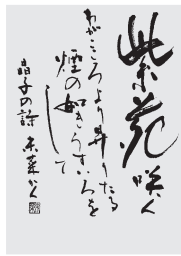 紫苑咲く
わがこころより昇りたる
煙の如きうすいろを
して
晶子の詩 かく